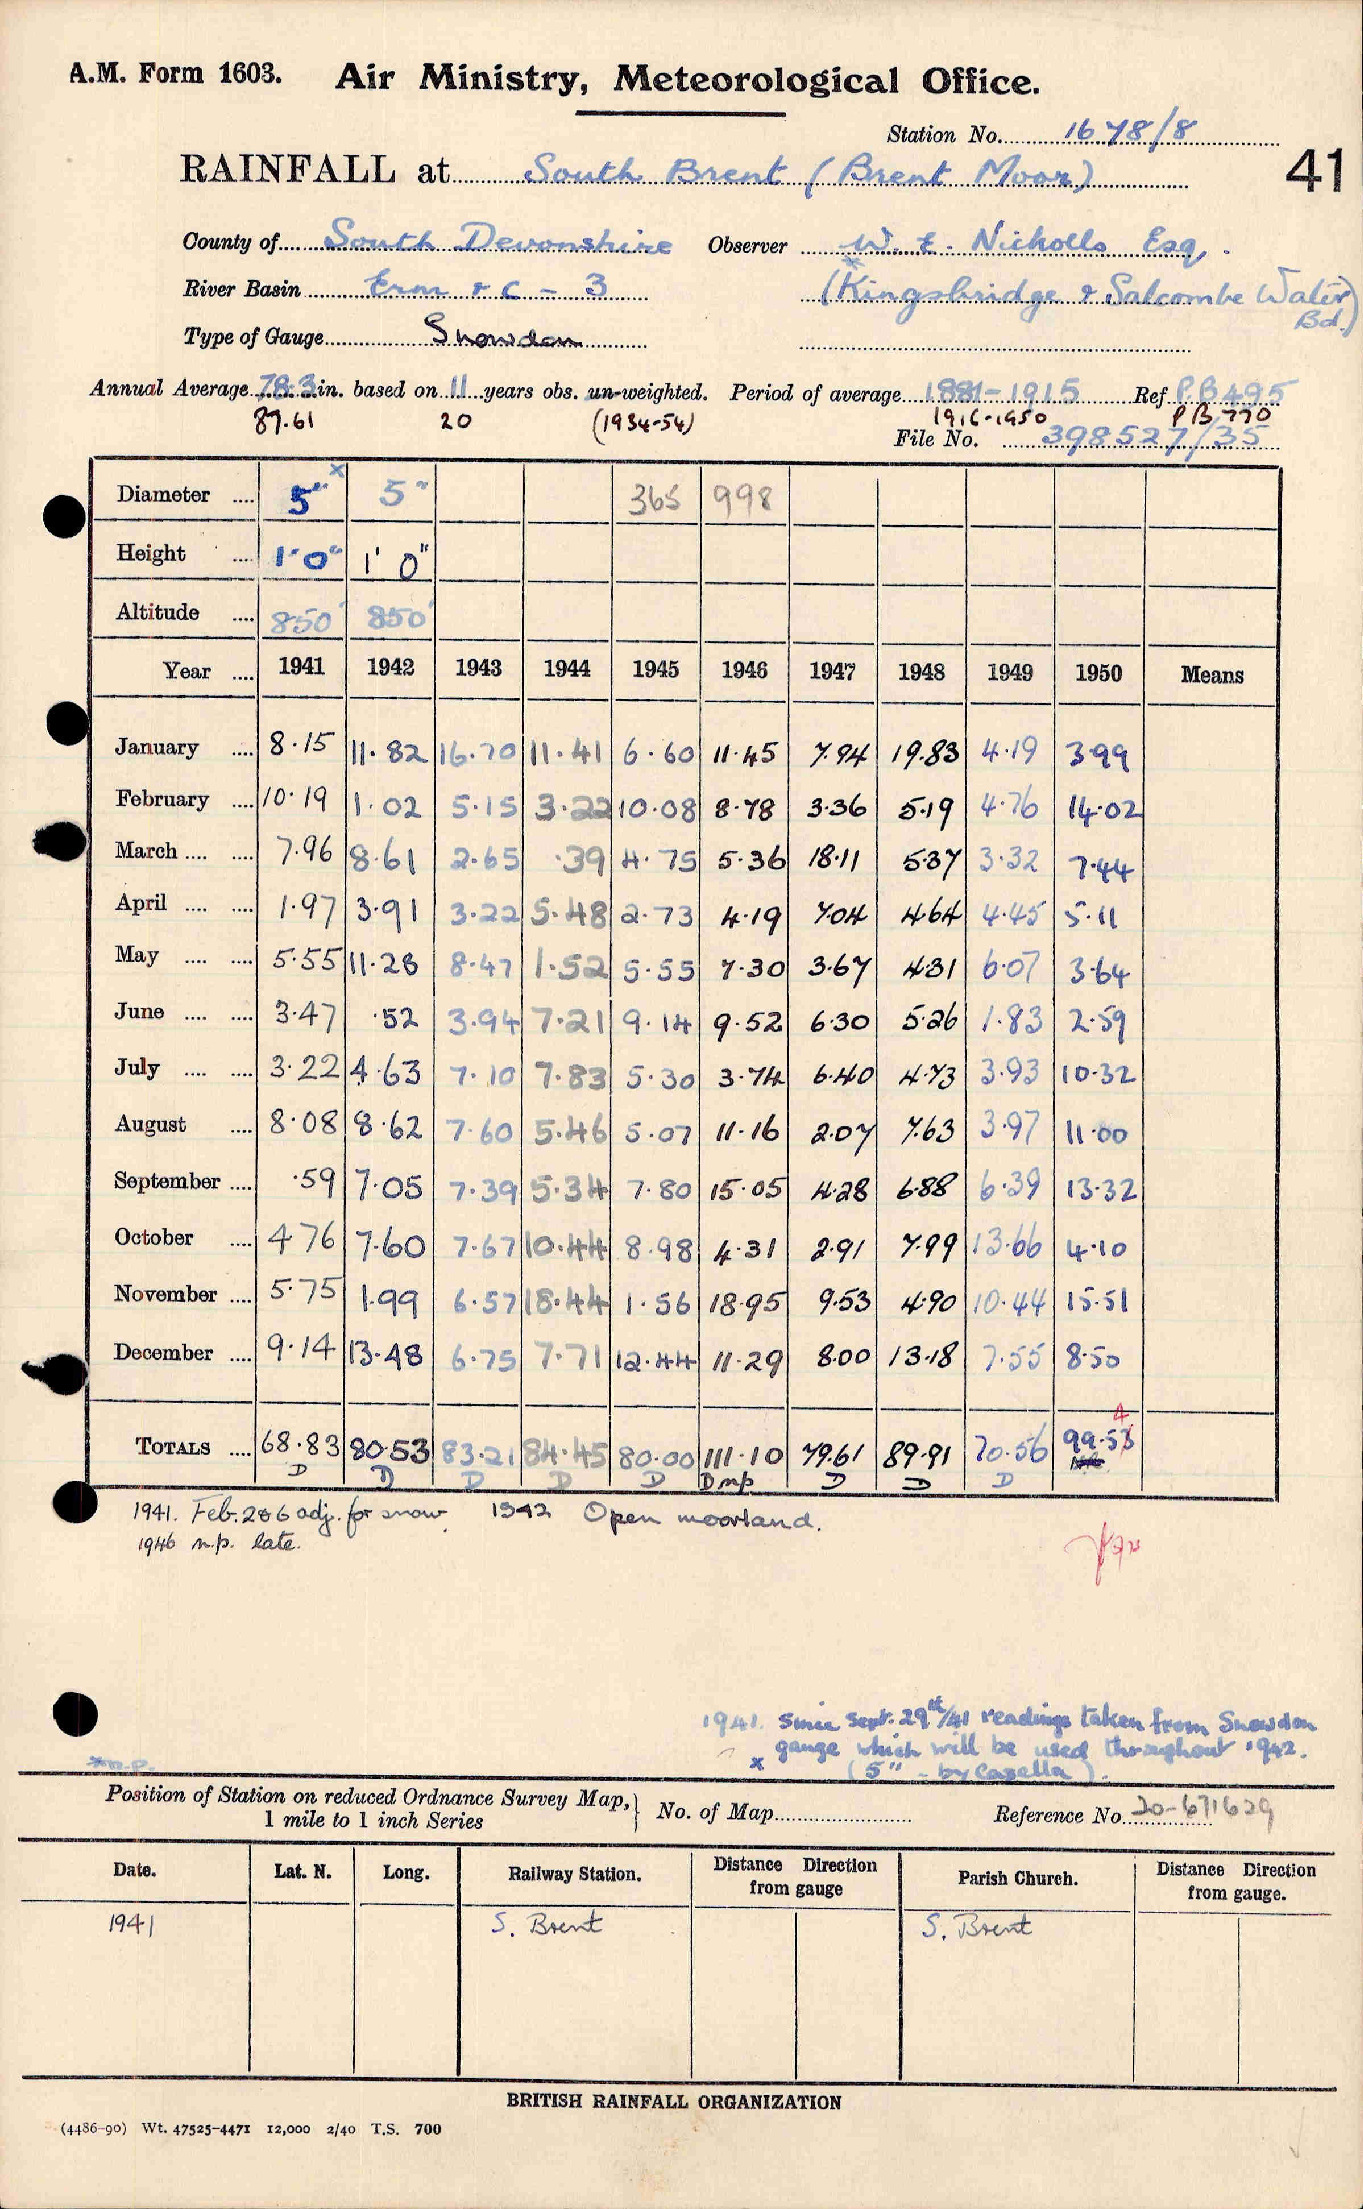 A.M. Form 1603. Air Ministry, Meteorological Office.
Station No. 1678/8
RAINFALL at South Brent (Brent Moor) 41
County of South Devonshire Observer W. E. Nicholls Esq.
River Basin Erm & C - 3 (Kingsbridge & Salcombe Water Bd.)
Type of Gauge Snowdon
Annual Average 78.3 in. based on 11 years obs. un-weighted. Period of average 1881-1915 Ref P.B 495
87.61 20 (1934-54) 1916-1950 PB 770
File No. 398527/35
Diameter 5" x 5" 365 998
Height 1' 0" 1' 0"
Altitude 850' 850'
Year 1941 1942 1943 1944 1945 1946 1947 1948 1949 1950 Means
January 8.15 11.82 16.70 11.41 6.60 11.45 7.94 19.83 4.19 3.99
February 10.19 1.02 5.15 3.22 10.08 8.78 3.36 5.19 4.76 14.02
March 7.96 8.61 2.65 .39 4.75 5.36 18.11 5.37 3.32 7.44
April 1.97 3.91 3.22 5.48 2.73 4.19 7.04 4.64 4.45 5.11
May 5.55 11.28 8.47 1.52 5.55 7.30 3.67 4.31 6.07 3.64
June 3.47 .52 3.94 7.21 9.14 9.52 6.30 5.26 1.83 2.59
July 3.22 4.63 7.10 7.83 5.30 3.74 6.40 4.73 3.93 10.32
August 8.08 8.62 7.60 5.46 5.07 11.16 2.07 7.63 3.97 11.00
September .59 7.05 7.39 5.34 7.80 15.05 4.28 6.88 6.39 13.32
October 4 76 7.60 7.67 10.44 8.98 4.31 2.91 7.99 13.66 4.10
November 5.75 1.99 6.57 18.44 1.56 18.95 9.53 4.90 10.44 15.51
December 9.14 13.48 6.75 7.71 12.44 11.29 8.00 13.18 7.55 8.50
4
TOTALS 68.83 80.53 83.21 84.45 80.00 111.10 79.61 89.91 70.56 99.53
D D D D D D mp D D D
1941. Feb. 286 adj. for snow 1942 Open moorland.
1946 n.p. late.
1941. Since Sept. 29th/41 readings taken from Snowdon
gauge which will be used throughout 1942.
x (5" - by Casella).
*n.p.
Position of Station on reduced Ordnance Survey Map, 1 mile to 1 inch Series No. of Map Reference No. 20-671629
Date. Lat. N. Long. Railway Station. Distance Direction from gauge Parish Church. Distance Direction from gauge.
1941 S. Brent S. Brent
BRITISH RAINFALL ORGANIZATION
(4486-90) Wt. 47525-4471 12,000 2/40 T.S. 700